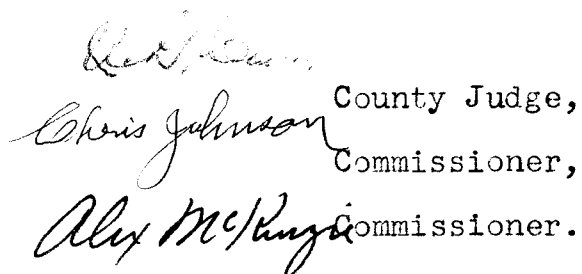 County Judge,
Chris Johnson
Commissioner,
Alex McKenzie Commissioner.